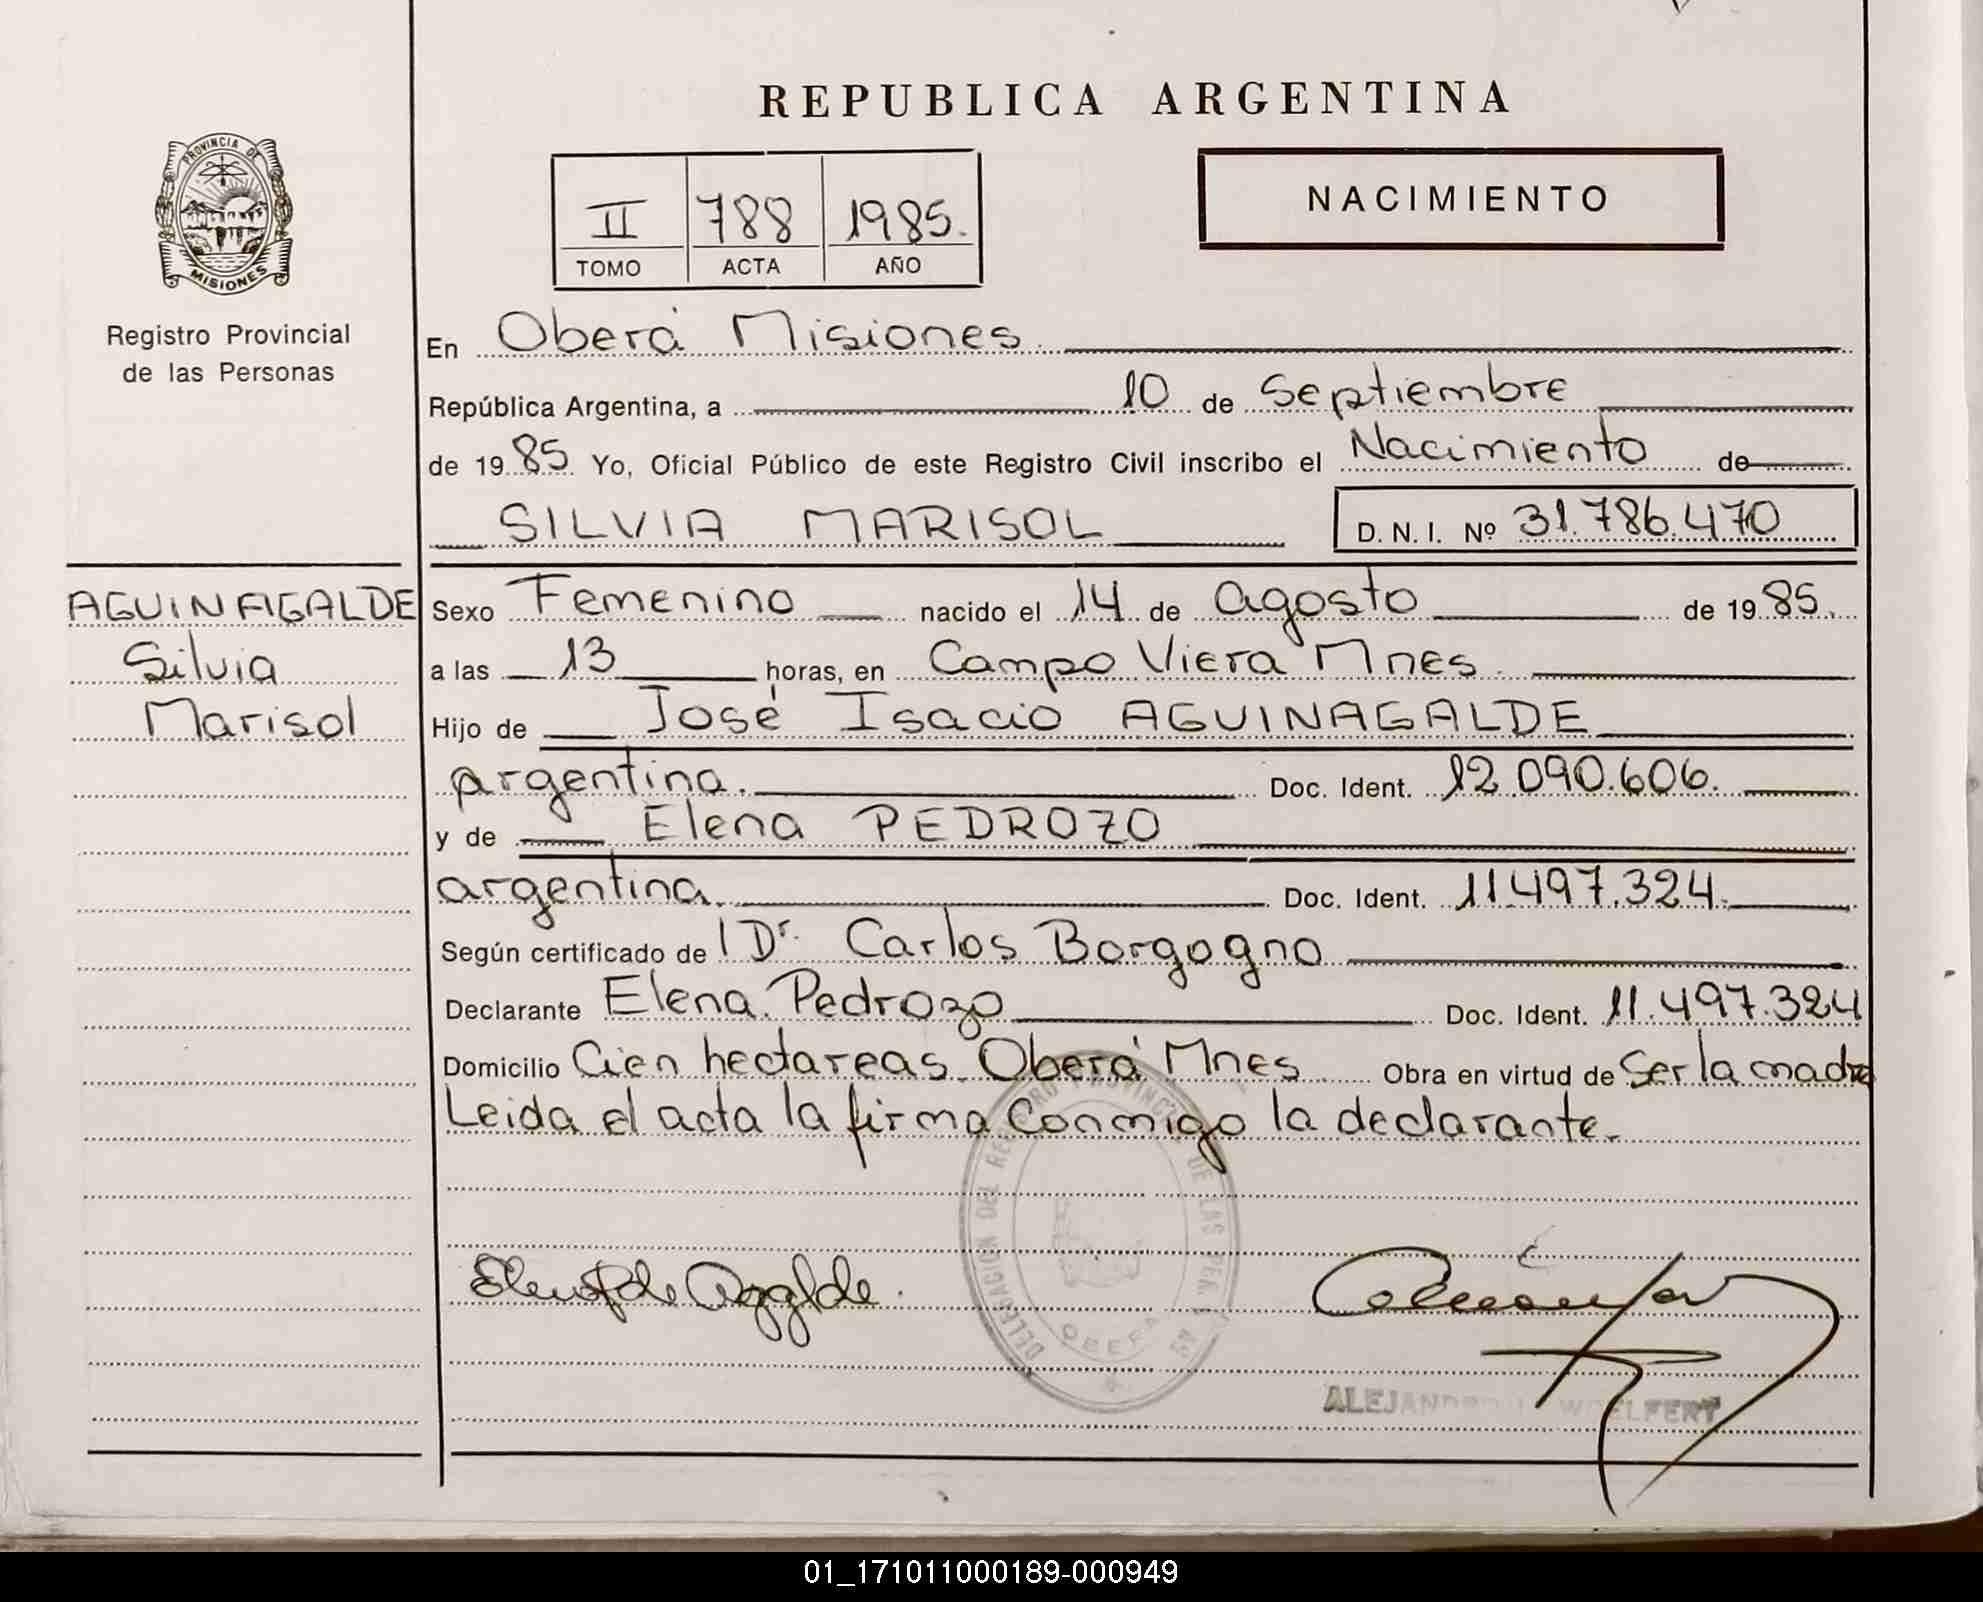 REPUBLICA ARGENTINA
PROVINCIA DE
MISIONES
Registro Provincial
de las Personas
II 788 1985.
TOMO ACTA AÑO
NACIMIENTO
En Oberá Misiones
República Argentina, a 10 de Septiembre
de 1985. Yo, Oficial Público de este Registro Civil inscribo el Nacimiento de
SILVIA MARISOL D. N. I. Nº 31.786.470
AGUINAGALDE
Silvia
Marisol
Sexo Femenino nacido el 14 de agosto de 1985.
a las 13 horas, en Campo Viera Mnes.
Hijo de José Isacio AGUINAGALDE
argentina. Doc. Ident. 12.090.606.
y de Elena PEDROZO
argentina. Doc. Ident. 11.497.324.
Según certificado de l Dr. Carlos Borgogno
Declarante Elena Pedrozo Doc. Ident. 11.497.324
Domicilio Cien hectareas Oberá Mnes Obra en virtud de Ser la madre
Leida el acta la firma Conmigo la declarante.
DELEGACION DEL REGISTRO PROVINCIAL DE LAS PER
OBERA
ALEJANDRO WOELFERT
01_171011000189-000949